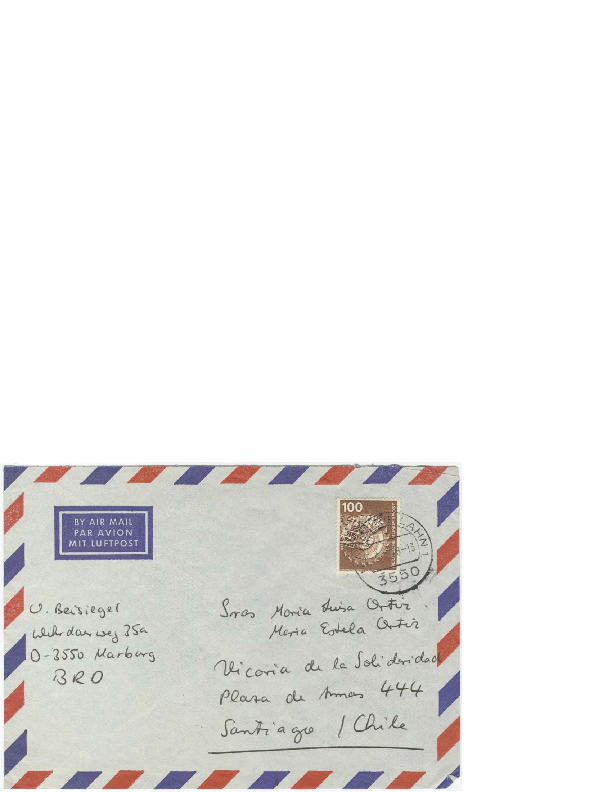 BY AIR MAIL
PAR AVION
MIT LUFTPOST
100
3550
U. Beisiegel
Wehrdaerweg 35a
D-3550 Marburg
BRD
Sras Maria Luisa Ortiz
Maria Estela Ortiz
Vicaria de la Solidaridad
Plaza de Armas 444
Santiago / Chile